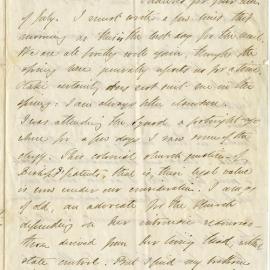 of July. I must write a few lines, this
morning as this is the last day for the mail.
We are all pretty well again, though the
spring here generally upsets us for a time.
State certainly does not suit me in the
spring. I am always then
I was attending the Synod a fortnight ago
when for a few days I saw some of the
clergy. This colonial Church question of
Bishops Patents, that is, their legal value
is now under our consideration. I was as
of old, an advocate for the Church
depending on her intrinsic resources
those derived from her living Head, rather
state control. But I find my